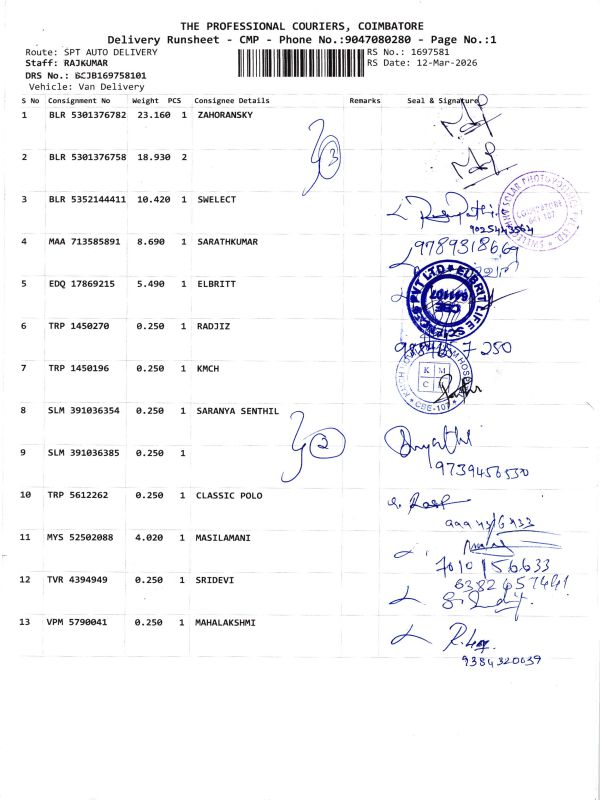 THE PROFESSIONAL COURIERS, COIMBATORE
Delivery Runsheet - CMP - Phone No.:9047080280 - Page No.:1
Route: SPT AUTO DELIVERY
RS No.: 1697581
Staff: RAJKUMAR
RS Date: 12-Mar-2026
DRS No.: BCJB169758101
Vehicle: Van Delivery
S No Consignment No Weight PCS Consignee Details Remarks Seal & Signature
1 BLR 5301376782 23.160 1 ZAHORANSKY
3
2 BLR 5301376758 18.930 2
3 BLR 5352144411 10.420 1 SWELECT
9025443564
4 MAA 713585891 8.690 1 SARATHKUMAR
9789318669
5 EDQ 17869215 5.490 1 ELBRITT
ELBRIT LIFE SCIENCES PVT LTD
CBE
641107
6 TRP 1450270 0.250 1 RADJIZ
7 TRP 1450196 0.250 1 KMCH
K M
C
CBE-107
8 SLM 391036354 0.250 1 SARANYA SENTHIL
2
9 SLM 391036385 0.250 1
9739456530
10 TRP 5612262 0.250 1 CLASSIC POLO
11 MYS 52502088 4.020 1 MASILAMANI
7010156633
12 TVR 4394949 0.250 1 SRIDEVI
6382457441
13 VPM 5790041 0.250 1 MAHALAKSHMI
9384320639